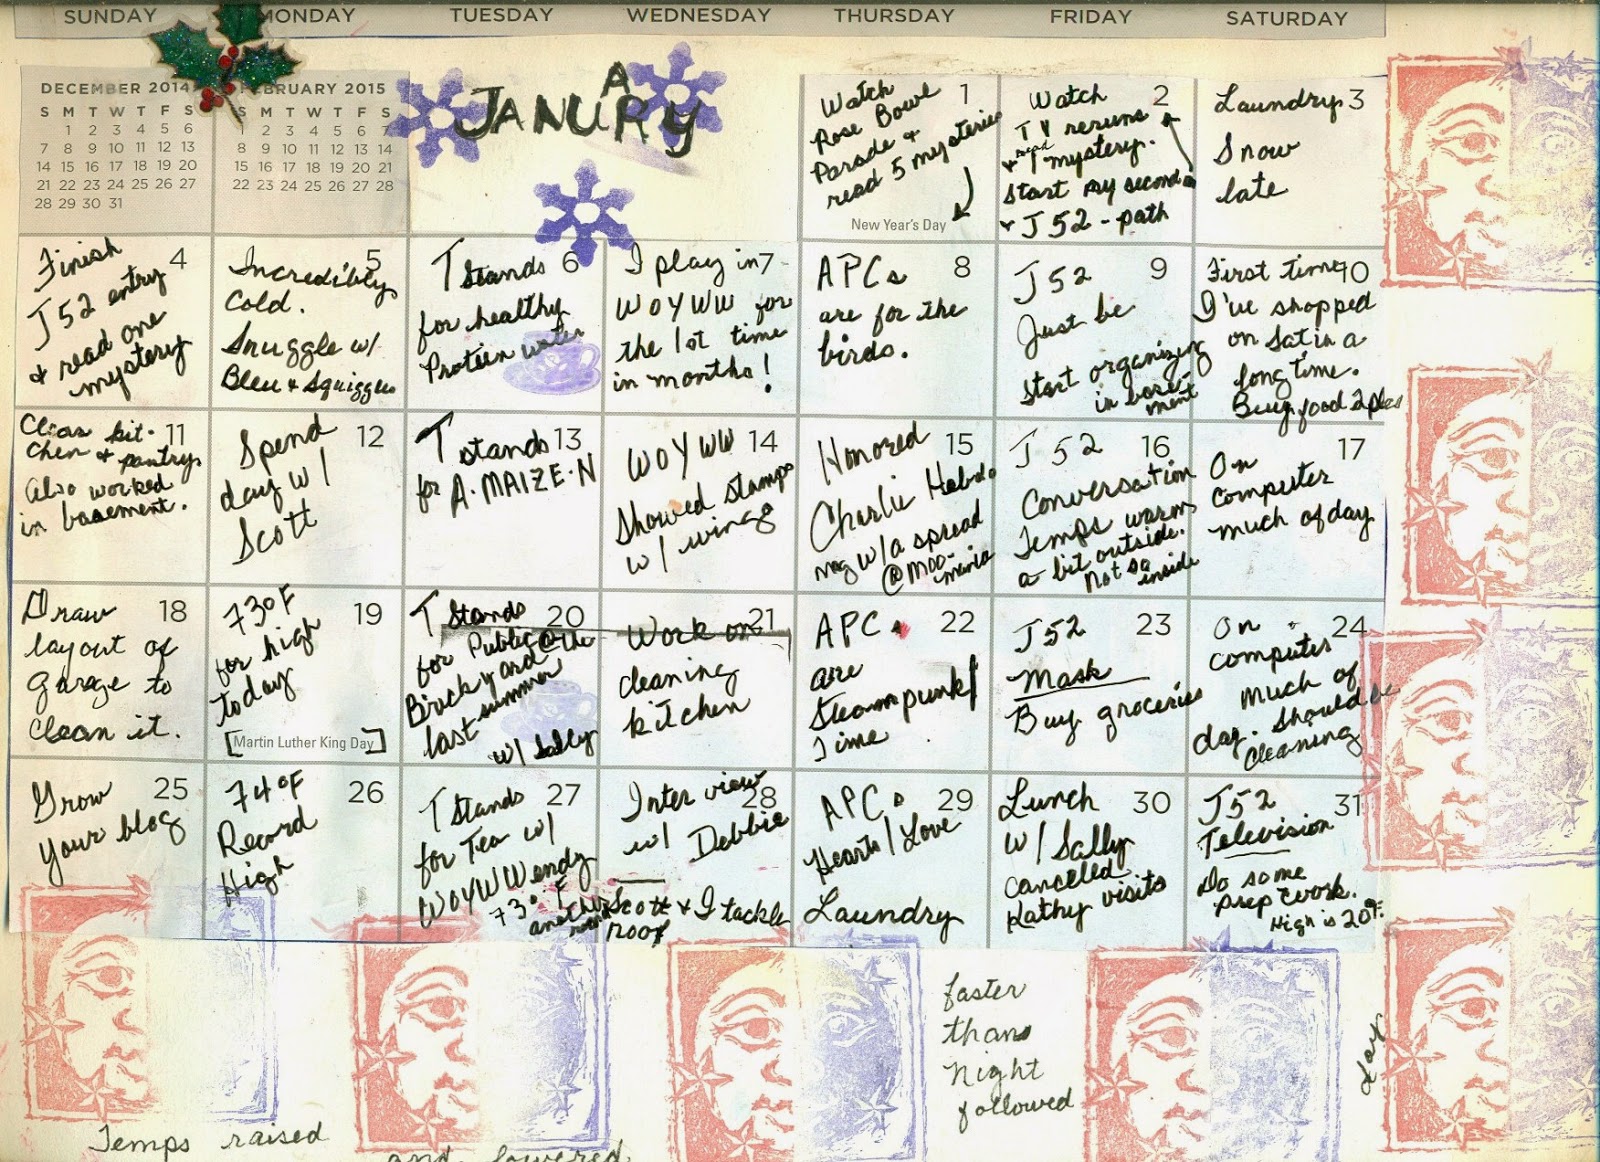 SUNDAY MONDAY TUESDAY WEDNESDAY THURSDAY FRIDAY SATURDAY
DECEMBER 2014
S M T W T F S
1 2 3 4 5 6
7 8 9 10 11 12 13
14 15 16 17 18 19 20
21 22 23 24 25 26 27
28 29 30 31
FEBRUARY 2015
S M T W T F S
1 2 3 4 5 6 7
8 9 10 11 12 13 14
15 16 17 18 19 20 21
22 23 24 25 26 27 28
A
JANURY
1
Watch
Rose Bowl
Parade +
read 5 mysteries
New Year's Day
2
Watch
TV reruns
+ read 1 mystery.
Start my second
+ J52 - path
Laundry 3
Snow
late
Finish 4
J52 entry
+ read one
mystery
5
Incredibly
cold.
Snuggle w/
Bleu + Squiggles
T stands 6
for healthy
Protien water
I play in 7
WOYWW for
the 1st time
in months!
APCs 8
are for the
birds.
J52 9
Just be
Start organizing
in base-
ment
First time 10
I've shopped
on Sat in a
long time.
Buy food 2 places
Clean kit- 11
chen & pantry
Also worked
in basement.
Spend 12
day w/
Scott
T stands 13
for A·MAIZE·N
WOYWW 14
Showed stamps
w/ wings
Honored 15
Charlie Hebdo
mag w/ a spread
@ Moo-
mania
J52 16
Conversation
Temps warm
a bit outside.
Not so
inside
On 17
computer
much of day
Draw 18
layout of
garage to
clean it.
73°F 19
for high
today
[Martin Luther King Day]
T Stands 20
for Public @ the
Brickyard
last summer
w/ Sally
Work on 21
cleaning
kitchen
APCs 22
are
Steampunk/
Time
J52 23
Mask
Buy groceries
On 24
computer
much of
day. Should be
cleaning
Grow 25
your blog
74°F 26
Record
High
T Stands 27
for Tea w/
WOYWW Wendy
73°F
another
Interview 28
w/ Debbie
Scott + I tackle
roof
APCs 29
Hearts/Love
Laundry
Lunch 30
w/ Sally
canceled
Kathy visits
J52 31
Television
Do some
prep work.
High is 20°F.
Temps raised
and lowered
faster
than
Night
followed
day